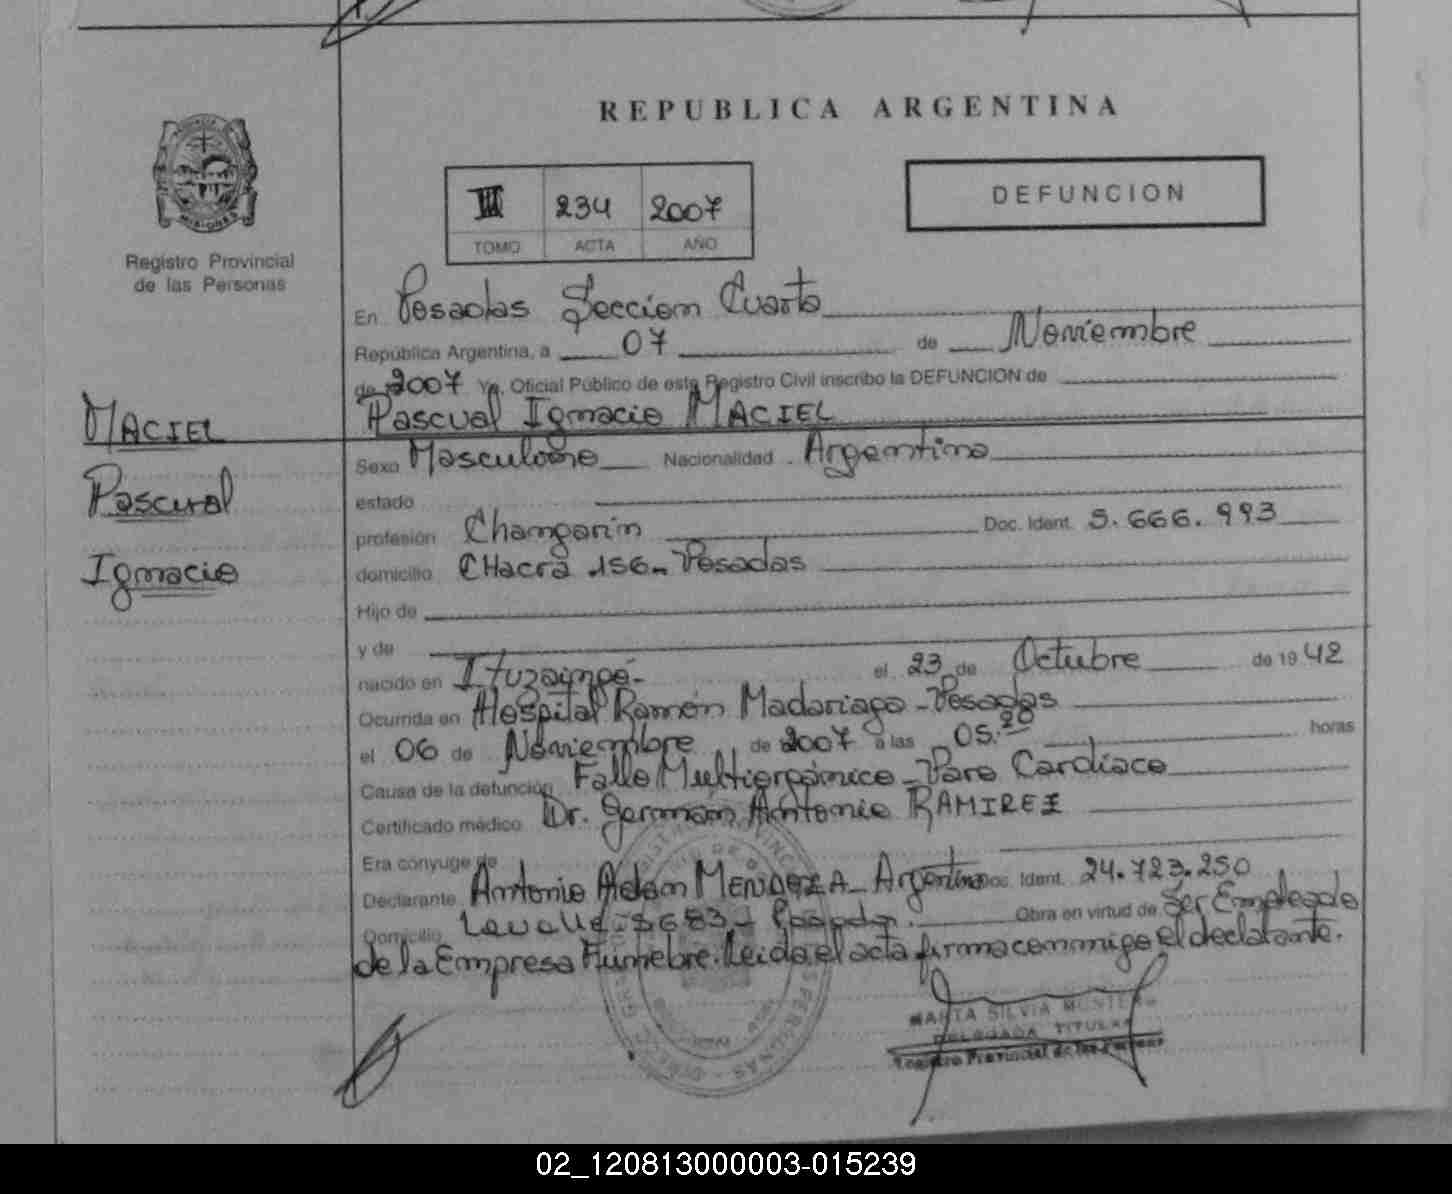 REPUBLICA ARGENTINA
MISIONES
Registro Provincial
de las Personas
III 234 2007
TOMO ACTA AÑO
DEFUNCION
En Posadas Seccion Cuarta
República Argentina, a 07 de Noviembre
de 2007 Yo, Oficial Público de este Registro Civil inscribo la DEFUNCION de
Pascual Ignacio MACIEL
MACIEL
Pascual
Ignacio
Sexo Masculino Nacionalidad Argentina
estado
profesión Changarin Doc. Ident. 5.666.993
domicilio CHacra 156- Posadas
Hijo de
y de
nacido en Ituzaingó- el 23 de Octubre de 19 42
Ocurrida en Hospital Ramón Madariaga - Posadas
el 06 de Noviembre de 2007 a las 05.20 horas
Causa de la defunción Fallo Multiorgánico - Paro Cardiaco
Certificado médico Dr. German Antonio RAMIREZ
Era cónyuge de
Declarante Antonio Adam MENDOZA- Argentino Doc. Ident. 24.723.250
Domicilio Lavalle 5683 - Posadas. Obra en virtud de Ser Empleado
de la Empresa Fúnebre. Leida el acta firma conmigo el declarante.
MARTA SILVIA
DELEGADA TITULAR
Registro Provincial de las Personas
02_120813000003-015239